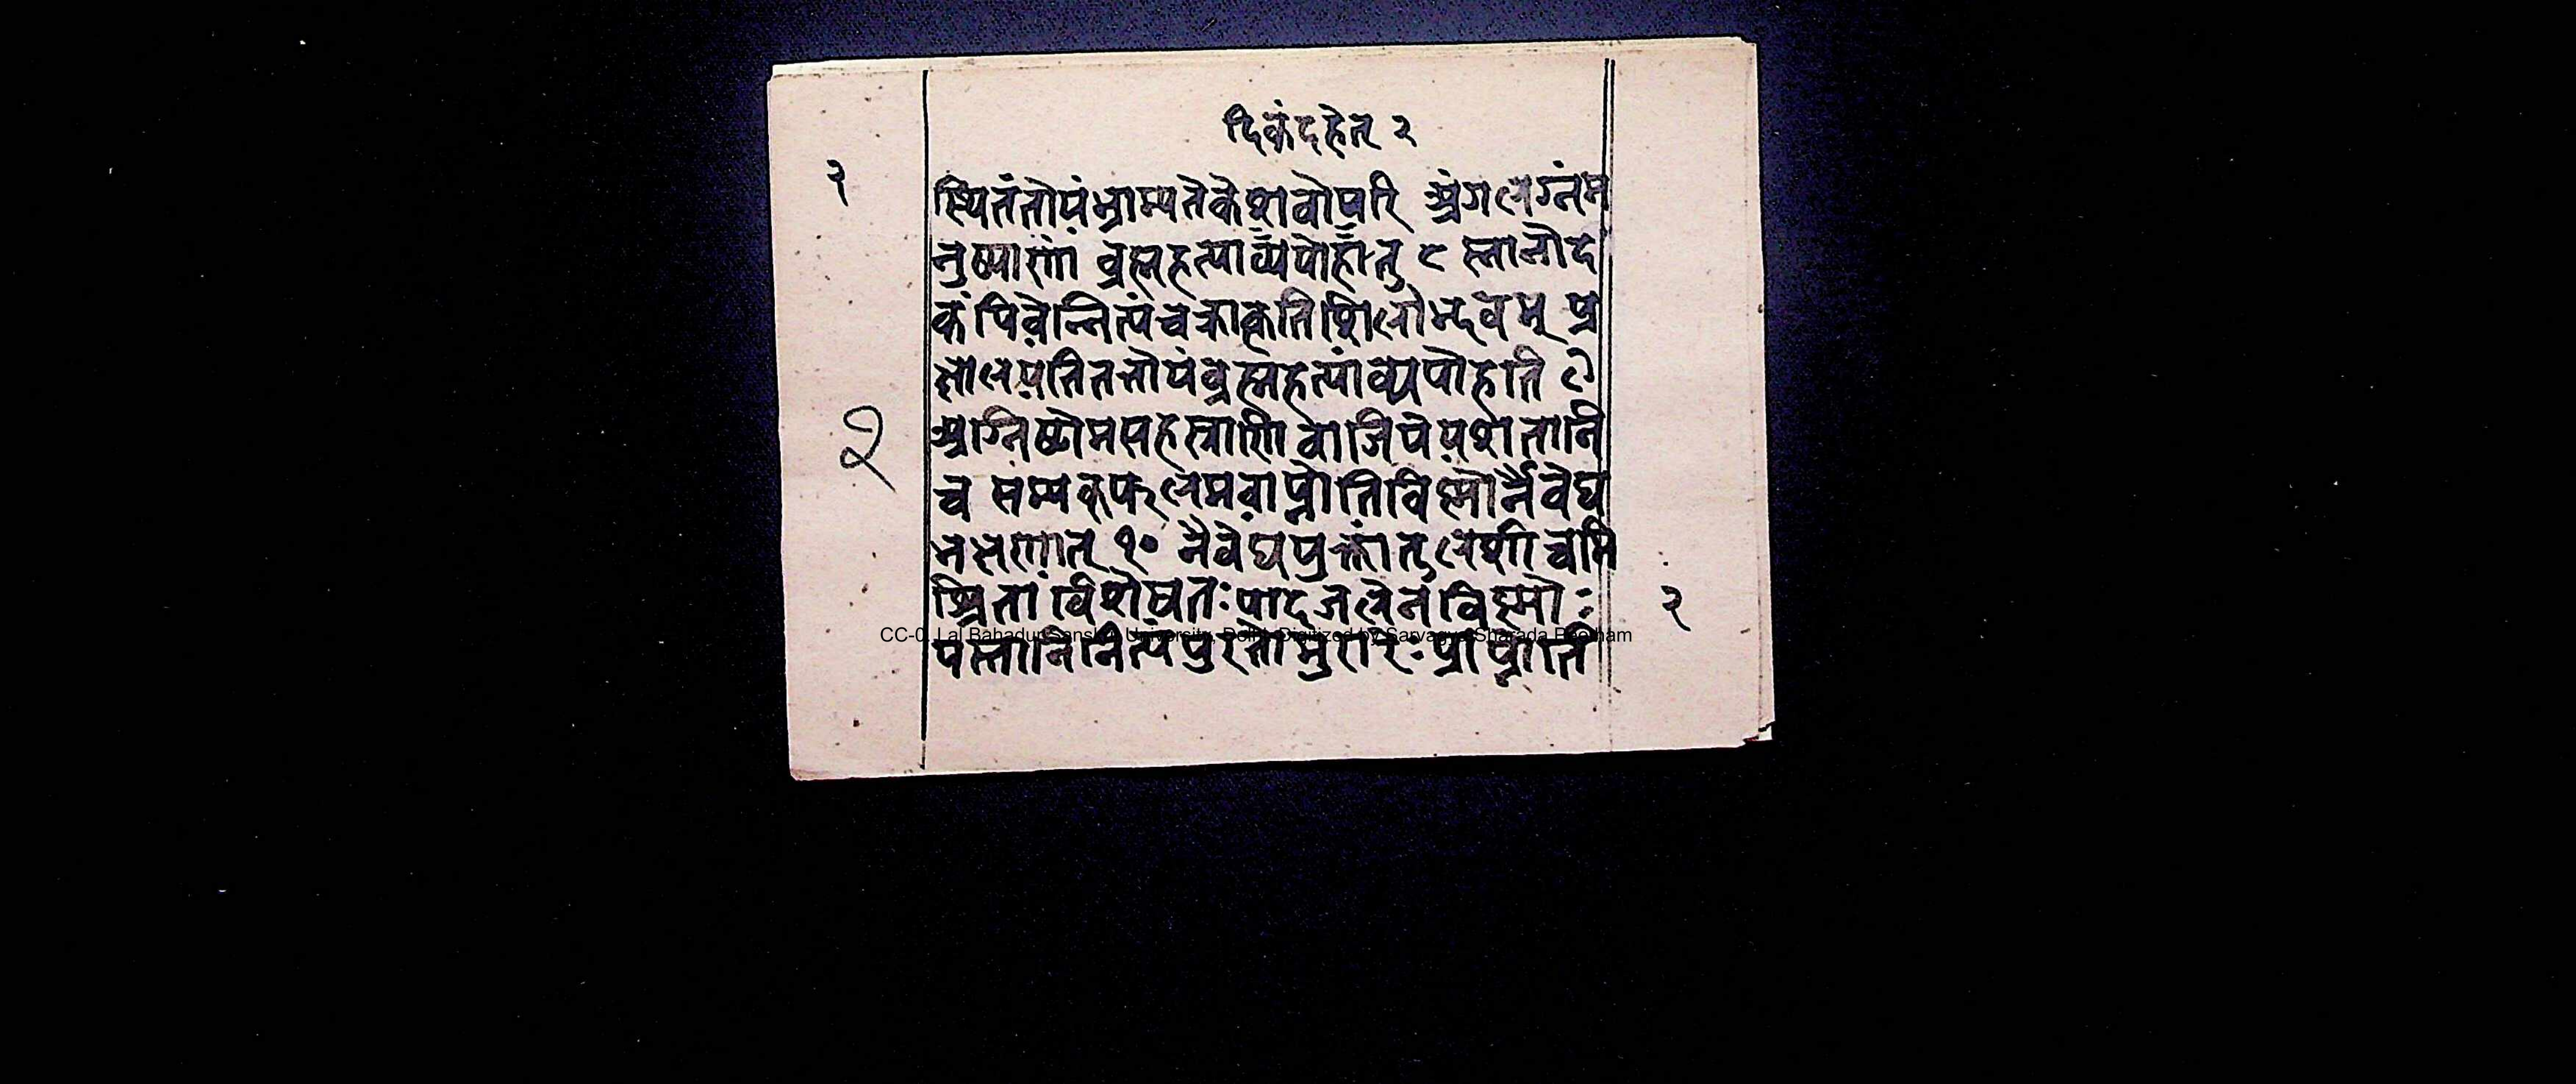 दिकंदहेत् २
२
स्थितंतोयंभ्राम्यतेकेशवोपरि अंगलग्नंम
नुष्याणां ब्रह्महत्याव्यपोहतु ८ स्नानोद
कंपिबेन्नित्यंचक्रांकृतिशिलोद्भवम् प्र
क्षालयतितत्तोयंब्रह्महत्यांव्यपोहति ९
अग्निष्टोमसहस्राणि वाजिपेयशतानि
२
च सम्यक्फलमवाप्नोतिविष्णोर्नैवेद्य
भक्षणात् १० नैवेद्ययुक्तांतुलसीं चमि
श्रितांर्विशेषतः पादजलेनविष्णोः
२
CC-0. Lal Bahadur Sanskrit University, Delhi. Digitized by Sarvagya Sharada Peetham
यंस्नानिनित्यंपुरतोमुरारेः प्राप्नोति